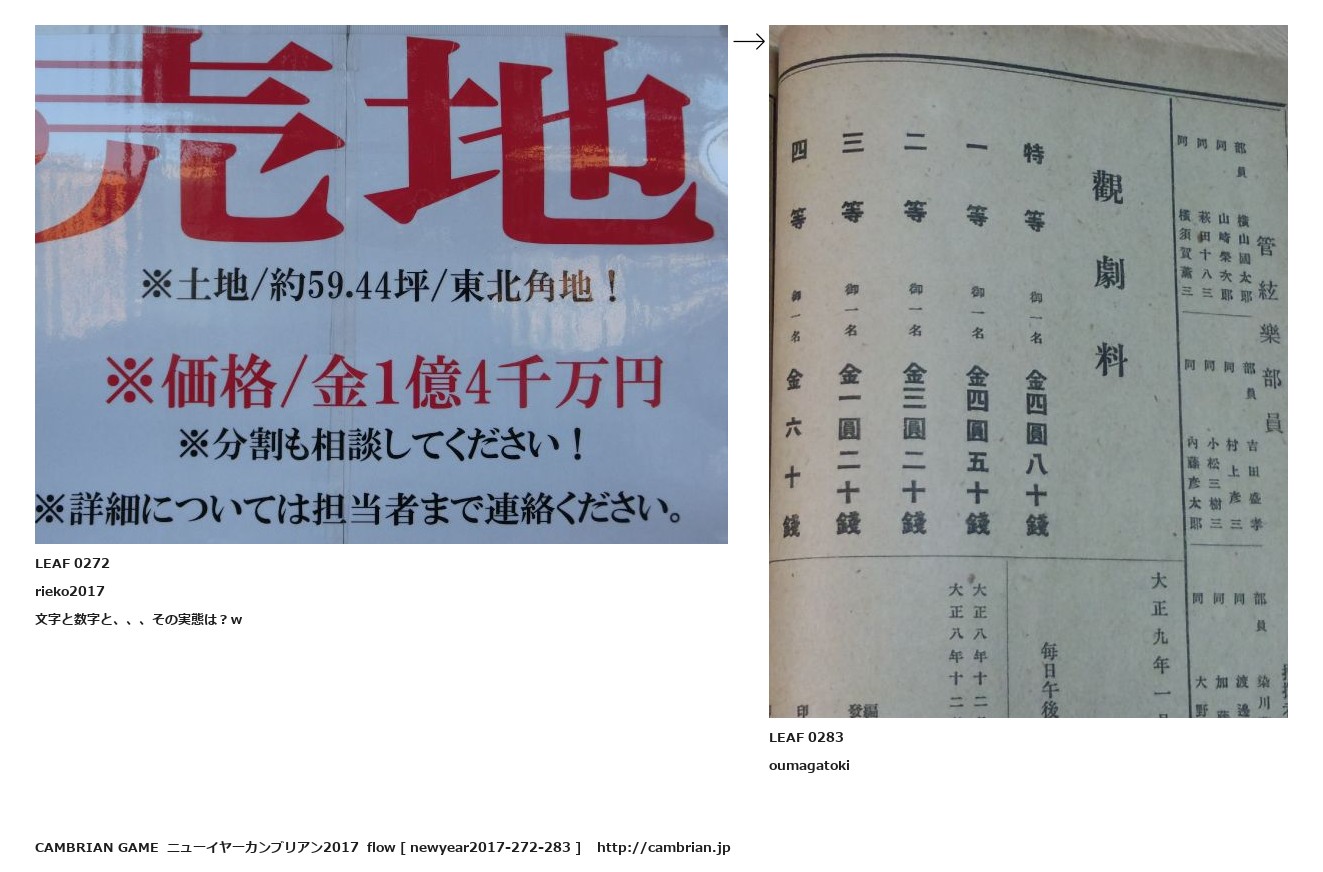 売地
※土地/約59.44坪/東北角地！
※価格/金1億4千万円
※分割も相談してください！
※詳細については担当者まで連絡ください。
LEAF 0272
rieko2017
文字と数字と、、、その実態は？w
→
管絃樂部員
部員 橫山國太郎
同 山崎榮次郎
同 萩田十八三
同 橫須賀薰三
部員 吉田盛孝
同 村上彦三
同 小松三樹三
同 內藤彦太郎
部員 染川
同 渡邊
同 加藤
同 大野
觀劇料
特等 御一名 金四圓八十錢
一等 御一名 金四圓五十錢
二等 御一名 金三圓二十錢
三等 御一名 金一圓二十錢
四等 御一名 金六十錢
大正九年一月
每日午後
大正八年十二
大正八年十二
編
發
印
LEAF 0283
oumagatoki
CAMBRIAN GAME ニューイヤーカンブリアン2017 flow [ newyear2017-272-283 ] http://cambrian.jp